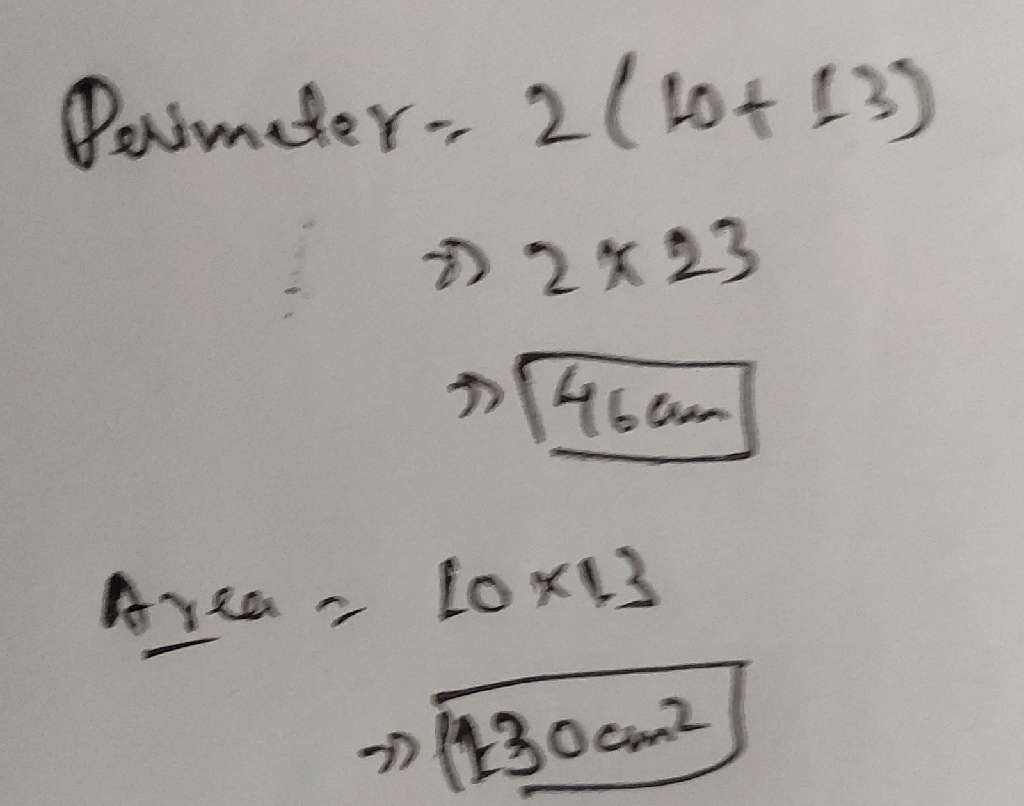 Perimeter = 2(10+13)
⇒ 2×23
⇒ 46cm
Area = 10×13
⇒ 130cm²